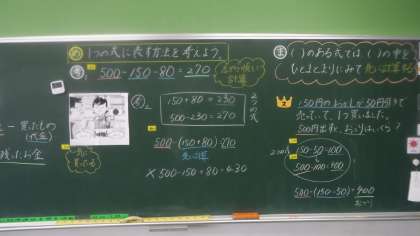 め 1つの式に表す方法を考えよう。
考1 500-150-80=270
左から順に計算
考2
150+80=230
500-230=270
2つの式
500-(150+80)=270
先に計算
×500-150+80=430
ー買ったもの
残ったお金
ま ( )のある式では( )の中を
ひとまとまりにみて先に計算する
2
150円のおかしが50円引きで
売っていて、1つ買いました。
500円出すと、おつりはいくら?
2つの式
150-50=100
500-100=400
500-(150-50)=400
おつり